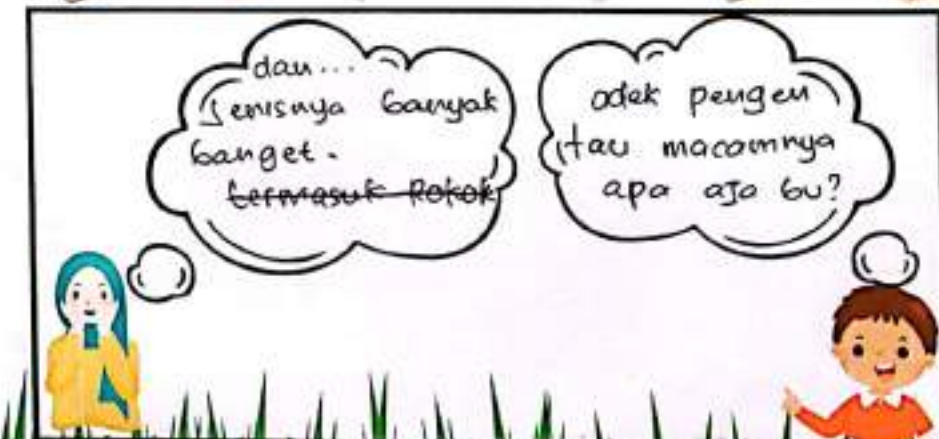 dan...
Jenisnya banyak
banget.
termasuk Rokok
adek pengen
tau macamnya
apa aja bu?